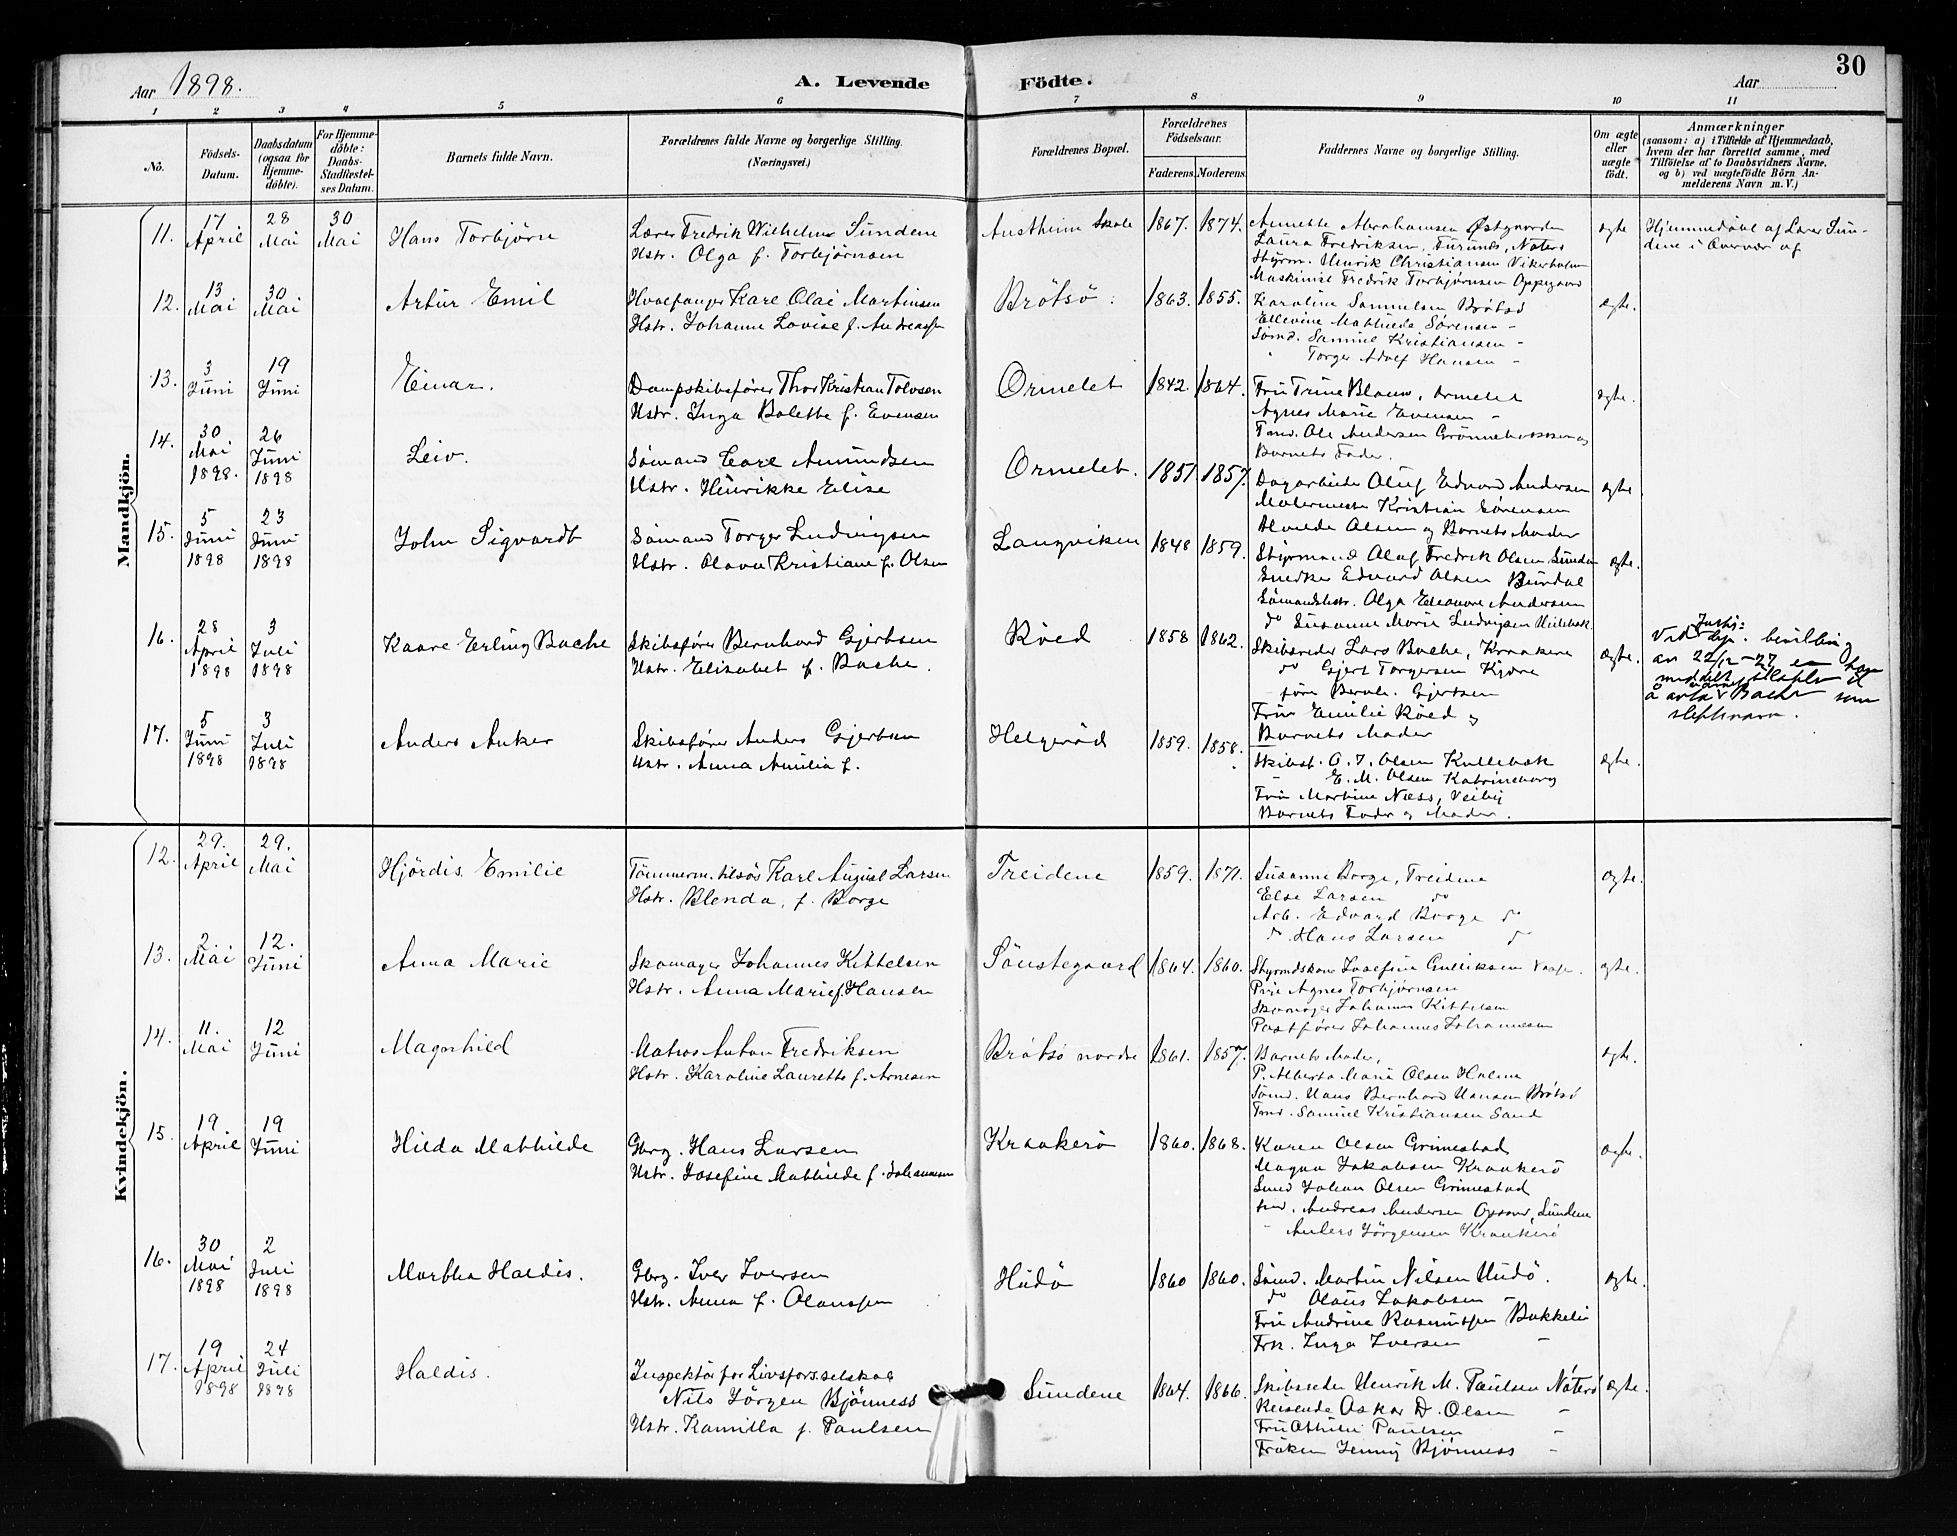 30
Aar 1898.
A. Levende Födte.
Aar
1 2 3 4 5 6 7 8 9 10 11
No.
Födsels-Datum.
Daabsdatum (ogsaa for Hjemme-döbte).
For Hjemme-döbte: Daabs-Stadfæstel-ses Datum.
Barnets fulde Navn.
Forældrenes fulde Navne og borgerlige Stilling.
(Næringsvei.)
Forældrenes Bopæl.
Forældrenes Födselsaar.
Faderens. Moderens.
Faddernes Navne og borgerlige Stilling.
Om ægte eller uægte födt.
Anmærkninger
(saasom: a) i Tilfælde af Hjemmedaab,
hvem der har forrettet samme, med
Tilföielse af to Daabsvidners Navne,
og b) ved uægtefödte Börn An-
melderens Navn m. V.)
Mandkjön.
11. 17 April 28 Mai 30 Mai Hans Torbjörn
Lærer Fredrik Wilhelm Sundene
Hstr. Olga f. Torbjörnsen
Austheim Skole 1867. 1874.
Annette Abrahamsen Østgaarden
Laura Fredriksen, Furund, Nöterö
Styrm. Henrik Christiansen Vikerholmen
Maskinist Fredrik Torbjörnsen Oppegaard
ægte
Hjemmedöbt af Lærer Sun-
dene i Overvær af
12. 13 Mai 30 Mai Artur Emil
Hvalfanger Karl Olai Martinsen
Hstr. Johanne Lovise f. Andreassen
Brötsö 1863. 1855.
Karoline Samuelsen Brötsö
Ellevine Mathilde Sörensen -
Sömd. Samuel Kristiansen -
" Torger Adolf Hansen -
ægte.
13. 3 Juni 19 Juni Einar.
Dampskibsförer Thor Kristian Tolvsen
Hstr. Inga Bolette f. Evensen
Ormelet 1842. 1864.
Fru Trine Blauw, Ormelet
Agnes Marie Evensen -
Tmd. Ole Andersen
Barnets Fader.
ægte.
14. 30 Mai 1898. 26 Juni 1898 Leiv.
Sömand Carl Amundsen
Hstr. Henrikke Elise
Ormelet. 1851. 1857.
Dagarbeider Oluf Edvard Andersen
Malermester Kristian Sörensen
Alvilde Olsen og Barnets Moder
ægte
15. 5 Juni 1898 23 Juni 1898 John Sigvardt
Sömand Torger Ludvigsen
Hstr. Olava Kristiane f. Olsen
Langviken 1848 1859.
Styrmand Oluf Fredrik Olsen Sunden
Snedker Edvard Olsen Bundal
Sömandshstr. Olga Eleonore Andersen
do Susanne Marie Ludvigsen
ægte.
16. 28 April 1898 3 Juli 1898 Kaare Erling Bache
Skibsförer Bernhard Gjertsen
Hstr. Elisabet f. Bache.
Röed 1858 1862.
Skibsreder Lars Bache, Kraakere
do Gjert Torgersen Kjöre
- förer Bernh. Gjertsen
Fru Emilie Röed og
Barnets Moder
ægte.
Ved Justis: dep. bevilling
av 22/12-27 er han
meddelt tilladelse til
å anta navnet Bache som
slektsnavn.
17. 5 Juni 1898 3 Juli 1898 Anders Anker
Skibsförer Anders Gjertsen
Hstr. Anna Amilia f.
Helgeröd 1859. 1858.
Skibsf. O. J. Olsen Kullebak
- E. M. Olsen Katrineborg
Fru Martine Næss, Veiby
Barnets Fader og Moder.
ægte.
Kvindekjön.
12. 29. April 29. Mai Hjördis Emilie
Tömmerm. tilsös Karl August Larsen
Hstr. Blenda, f. Borge
Treidene 1859. 1871.
Susanne Borge, Treidene
Else Larsen do
Arb. Edvard Borge do
do Hans Larsen do
ægte.
13. 2. Mai 12. Juni Anna Marie
Skomager Johannes Kittelsen
Hstr. Anna Marie f. Hansen
Sönstegaard 1864. 1860.
Styrmdskone Josefine Gulliksen
Pige Agnes Torbjörnsen
Skomager Johannes Kittelsen
Postförer Johannes Johannesen
ægte.
14. 11. Mai 12 Juni Magnhild
Matros Anton Fredriksen
Hstr. Karoline Laurette f. Arnesen
Brötsö nordre 1861. 1857.
Barnets Moder,
P. Alberta Marie Olsen Holme
Sömd. Hans Bernhard Hansen Brötsö
Tmd. Samuel Kristiansen Sand
ægte.
15. 19 April 19 Juni Hilda Mathilde
Gbrg. Hans Larsen
Hstr. Josefine Mathilde f. Johannesen
Kraakerö 1860. 1868.
Karen Olsen Grimestad
Magna Jakobsen Kraakerö
Smd Johan Olsen Grimestad
smd. Andreas Andersen Opsand, Sundene
- Anders Jörgensen Kraakerö
ægte.
16. 30 Mai 1898 2 Juli 1898 Martha Haldis.
Gbrg. Iver Iversen
Hstr. Anna f. Olaussen
Hudö 1860 1860.
Sömd. Martin Nilsen Hudö.
do Olaus Jakobsen -
Fru Andrine Rasmussen Bakkelie
Frk. Inga Iversen -
ægte.
17. 19 April 1898 24 Juli 1898 Haldis.
Inspektör for Livsfors.selskab
Nils Jörgen Bjönness
Hstr. Kamilla f. Paulsen
Sundene 1864. 1866.
Skibsreder Henrik M. Paulsen Nöterö
Reisende Oskar D. Olsen -
Fru Othilie Paulsen -
Fröken Jenny Bjönness -
ægte.